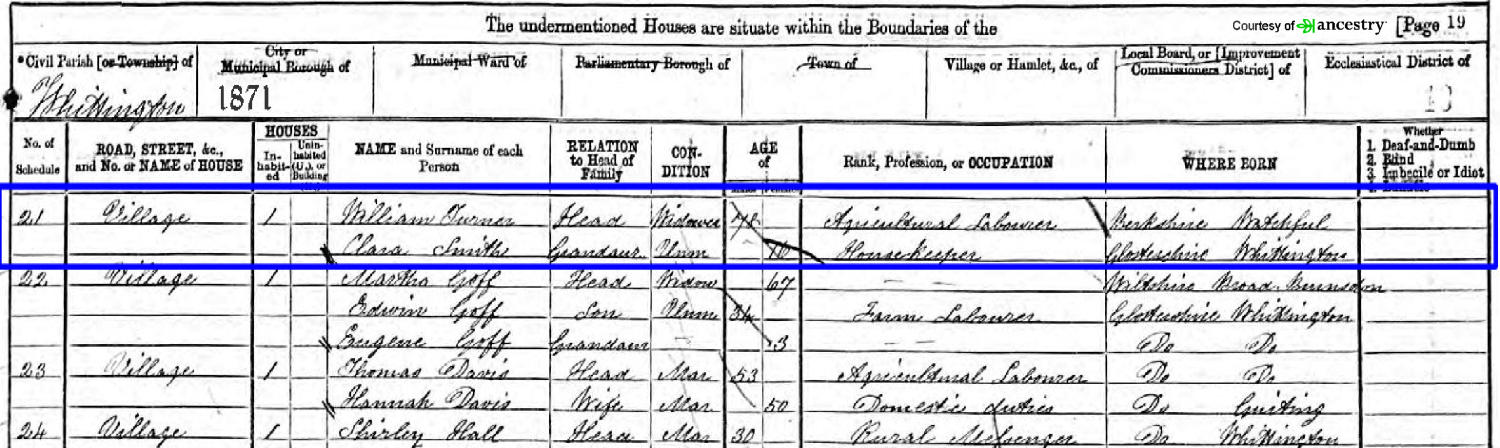 The undermentioned Houses are situate within the Boundaries of the Courtesy of ancestry [Page 19
*Civil Parish [or Township] of City or Municipal Borough of Municipal Ward of Parliamentary Borough of Town of Village or Hamlet, &c., of Local Board, or [Improvement Commissioners District] of Ecclesiastical District of
Whittington 1871 13
No. of Schedule ROAD, STREET, &c., and No. or NAME of HOUSE HOUSES In-habit-ed Unin-habited (U.), or Building (B.) NAME and Surname of each Person RELATION to Head of Family CON-DITION AGE of Males Females Rank, Profession, or OCCUPATION WHERE BORN Whether 1. Deaf-and-Dumb 2. Blind 3. Imbecile or Idiot 4. Lunatic
21 Village 1 William Turner Head Widower 78 Agricultural Labourer Berkshire Watchful
Clara Smith Grandaur Unm 16 Housekeeper Glostershire Whittington
22 Village 1 Martha Goff Head Widow 67 — — Wiltshire Broad Bunsdon
Edwin Goff Son Unm 34 Farm Labourer Glostershire Whittington
Eugene Goff Grandaur — 3 — — Do Do
23 Village 1 Thomas Davis Head Mar 53 Agricultural Labourer Do Do
Hannah Davis Wife Mar 50 Domestic duties Do Guiting
24 Village 1 Shirley Hall Head Mar 30 Rural Messenger Do Whittington